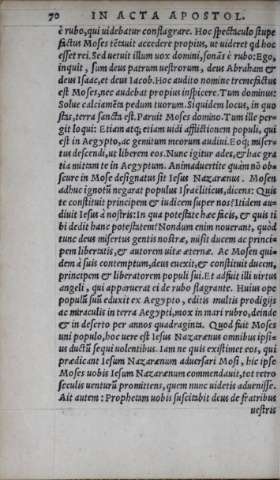 70 IN ACTA APOSTOL.
è rubo, qui uidebatur conflagrare. Hoc spectaculo stupe
factus Moses tẽtuit accedere propius, ut uideret qd hoc
esset rei. Sed uetuit illum uox domini, sonãs è rubo: Ego,
inquit, sum deus patrum uestrorum, deus Abraham &
deus Isaac, et deus Iacob. Hoc audito nomine tremefactus
est Moses, nec audebat propius inspicere. Tum dominus:
Solue calciamẽta pedum tuorum. Siquidem locus, in quo
stas, terra sancta est. Paruit Moses domino. Tum ille per-
git loqui: Etiam atq; etiam uidi afflictionem populi, qui
est in Aegypto, ac gemitum meorum audiui. Eoq; miser-
tus descendi, ut liberem eos. Nunc igitur ades, & hac gra
tia mittam te in Aegyptum. Animaduertite quàm nõ ob-
scure in Mose designatus sit Iesus Nazarenus. Mosen
adhuc ignotũ negarat populus Israeliticus, dicens: Quis
te constituit principem & iudicem super nos? Itidem au-
diuit Iesus à nostris: In qua potestate hæc facis, & quis ti
bi dedit hanc potestatem? Nondum enim nouerant, quòd
tunc deus misertus gentis nostræ, misit ducem ac princi-
pem libertatis, & autorem uitæ æternæ. Ac Mosen qui-
dem à suis contemptum, deus euexit, & constituit ducem,
principem & liberatorem populi sui. Et adfuit illi uirtus
angeli, qui apparuerat ei de rubo flagrante. Huius ope
populũ suũ eduxit ex Aegypto, editis multis prodigijs
ac miraculis in terra Aegypti, mox in mari rubro, deinde
& in deserto per annos quadraginta. Quod fuit Moses
uni populo, hoc uere est Iesus Nazarenus omnibus ipsi-
us ductũ sequi uolentibus. Iam ne quis existimet eos, qui
prædicant Iesum Nazarenum aduersari Mosi, hic ipse
Moses uobis Iesum Nazarenum commendauit, tot retro
seculis uenturũ promittens, quem nunc uidetis aduenisse.
Ait autem: Prophetam uobis suscitabit deus de fratribus
uestris